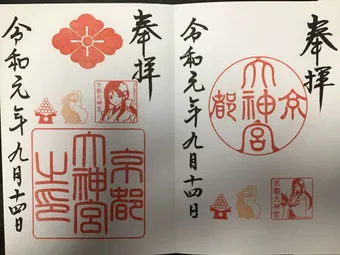 奉拝
京都大神宮
京都
大神宮
之印
令和元年九月十四日
奉拝
大神宮
京都
京都大神宮
令和元年九月十四日